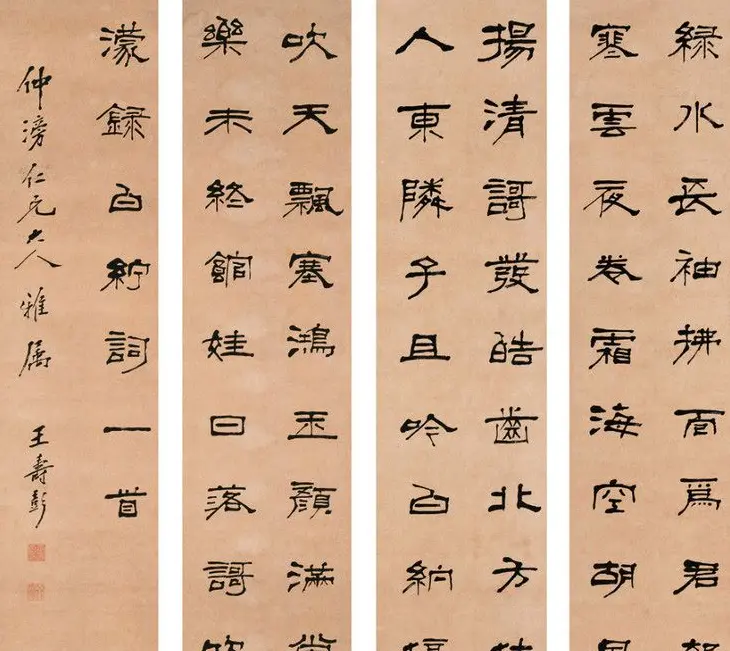 緑水長袖拂面爲君
寒雲夜卷霜海空胡
揚清謌發皓齒北方
人東隣子且吟白紵
吹天飄塞鴻玉顏滿
樂未終館娃日落謌
濛録白紵詞一首
仲滂仁兄大人雅屬 王壽彭